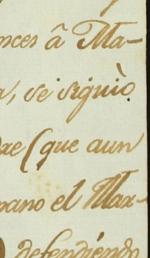 nces â Ma-
, se siguiò
re (que aun
ano el Mar-
defendiendo